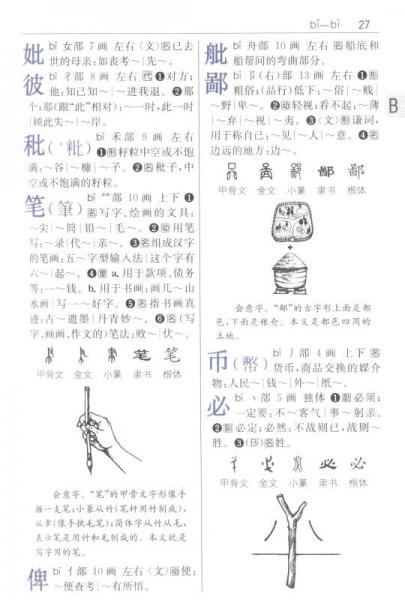 bǐ—bì 27
B
妣 bǐ 女部 7画 左右〈文〉名已去
世的母亲:如丧考~|先~。
彼 bǐ 彳部 8画 左右 代❶对方;
他:知己知~|~进我退。❷那
个;那(跟“此”相对):~一时,此一时
|顾此失~|~岸。
秕(*粃) bǐ 禾部 9画 左右
❶形籽粒中空或不饱
满:~谷|~糠|~子。❷名秕子,中
空或不饱满的籽粒。
笔(筆) bǐ ⺮部 10画 上下❶
名写字、绘画的文具:
~尖|~筒|铅~|毛~。❷动用笔
写:~录|代~|亲~。❸名组成汉字
的笔画:五~字型输入法|这个字有
六~|起~。❹量a.用于款项、债务
等:一~钱。b.用于书画:画几~山
水画|写一~好字。❺名指书画真
迹:古~遗墨|丹青妙~。❻名(写
字、画画、作文的)笔法:败~|伏~。
笔 笔
甲骨文 金文 小篆 隶书 楷体
会意字。“笔”的甲骨文字形像手
握一支笔;小篆从竹(笔杆用竹制成),
从聿(像手执毛笔);简体字从竹从毛,
表示笔是用竹和毛制成的。本义就是
写字用的笔。
俾 bǐ 亻部 10画 左右〈文〉动使:
~便查考|~有所悟。
舭 bǐ 舟部 10画 左右 名船底和
船帮间的弯曲部分。
鄙 bǐ 阝(右)部 13画 左右 ❶形
粗俗;(品行)低下:~俗|~贱|
~野|卑~。❷动轻视;看不起:~薄
|~弃|~视|~夷。❸〈文〉形谦词,
用于称自己:~见|~人|~意。❹名
边远的地方:边~。
鄙 鄙
甲骨文 金文 小篆 隶书 楷体
会意字。“鄙”的古字形上面是都
邑,下面是粮仓。本义是都邑四周的
土地。
币(幣) bì 丿部 4画 上下 名
货币,商品交换的媒介
物:人民~|钱~|外~|纸~。
必 bì 丶部 5画 独体 ❶副必须;
一定要:不~客气|事~躬亲。
❷副必定;必然:不战则已,战则~
胜。❸(Bì)名姓。
必 必
甲骨文 金文 小篆 隶书 楷体